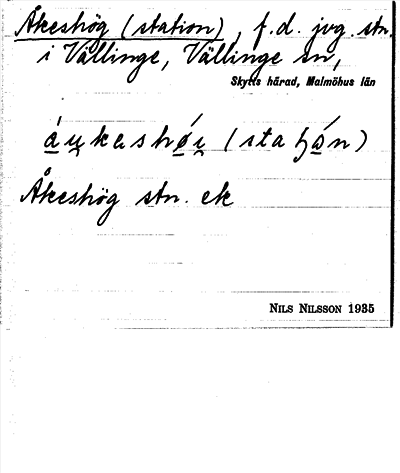 Åkeshög (station), f.d. jvg. stn.
i Vällinge, Vällinge sn,
Skytts härad, Malmöhus län
Åkeshög stn. ek
NILS NILSSON 1935